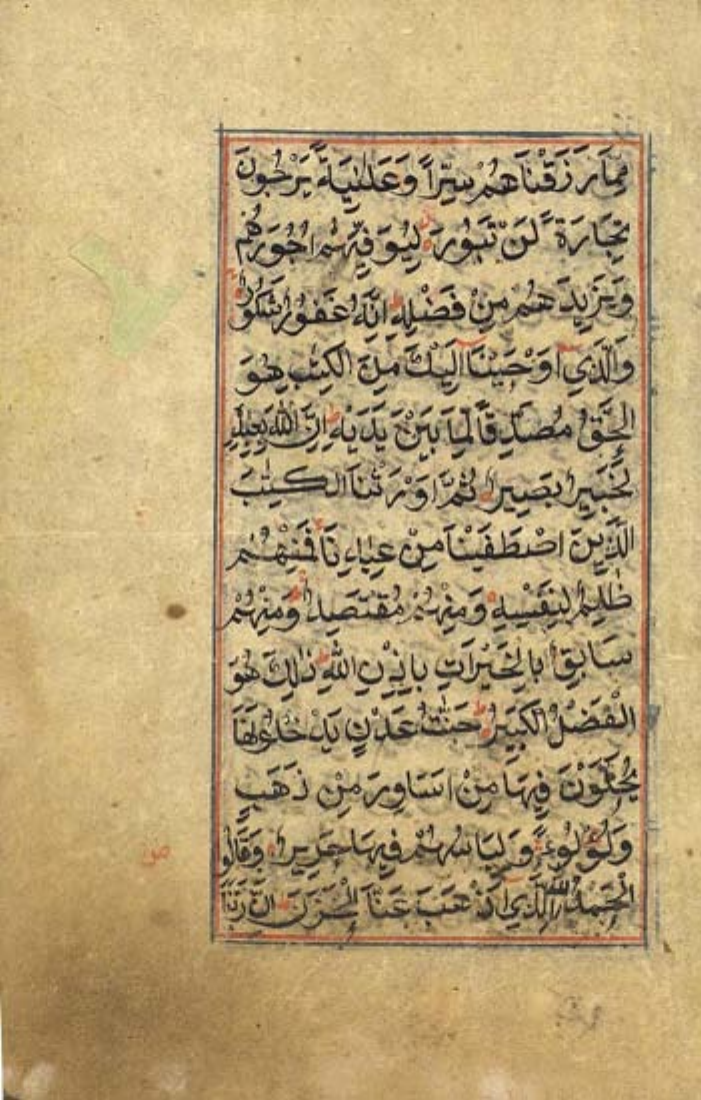 مِمَّا رَزَقْنَاهُمْ سِرًّا وَعَلَنِيَةً يَرْجُونَ
تِجَارَةً لَنْ تَبُورَ لِيُوَفِّيَهُمْ اُجُورَهُمْ
وَيَزِيدَهُمْ مِنْ فَضْلِهِ اِنَّهُ غَفُورٌ شَكُورٌ
وَالَّذِي اَوْحَيْنَا اِلَيْكَ مِنَ الْكِتٰبِ هُوَ
الْحَقُّ مُصَدِّقًا لِمَا بَيْنَ يَدَيْهِ اِنَّ اللّٰهَ بِعِبَادِهِ
لَخَبِيرٌ بَصِيرٌ ثُمَّ اَوْرَثْنَا الْكِتٰبَ
الَّذِينَ اصْطَفَيْنَا مِنْ عِبَادِنَا فَمِنْهُمْ
ظَالِمٌ لِنَفْسِهِ وَمِنْهُمْ مُقْتَصِدٌ وَمِنْهُمْ
سَابِقٌ بِالْخَيْرَاتِ بِاِذْنِ اللّٰهِ ذٰلِكَ هُوَ
الْفَضْلُ الْكَبِيرُ جَنّٰتُ عَدْنٍ يَدْخُلُونَهَا
يُحَلَّوْنَ فِيهَا مِنْ اَسَاوِرَ مِنْ ذَهَبٍ
وَلُؤْلُؤًا وَلِبَاسُهُمْ فِيهَا حَرِيرٌ وَقَالُوا
الْحَمْدُ لِلّٰهِ الَّذِي اَذْهَبَ عَنَّا الْحَزَنَ اِنَّ رَبَّنَا